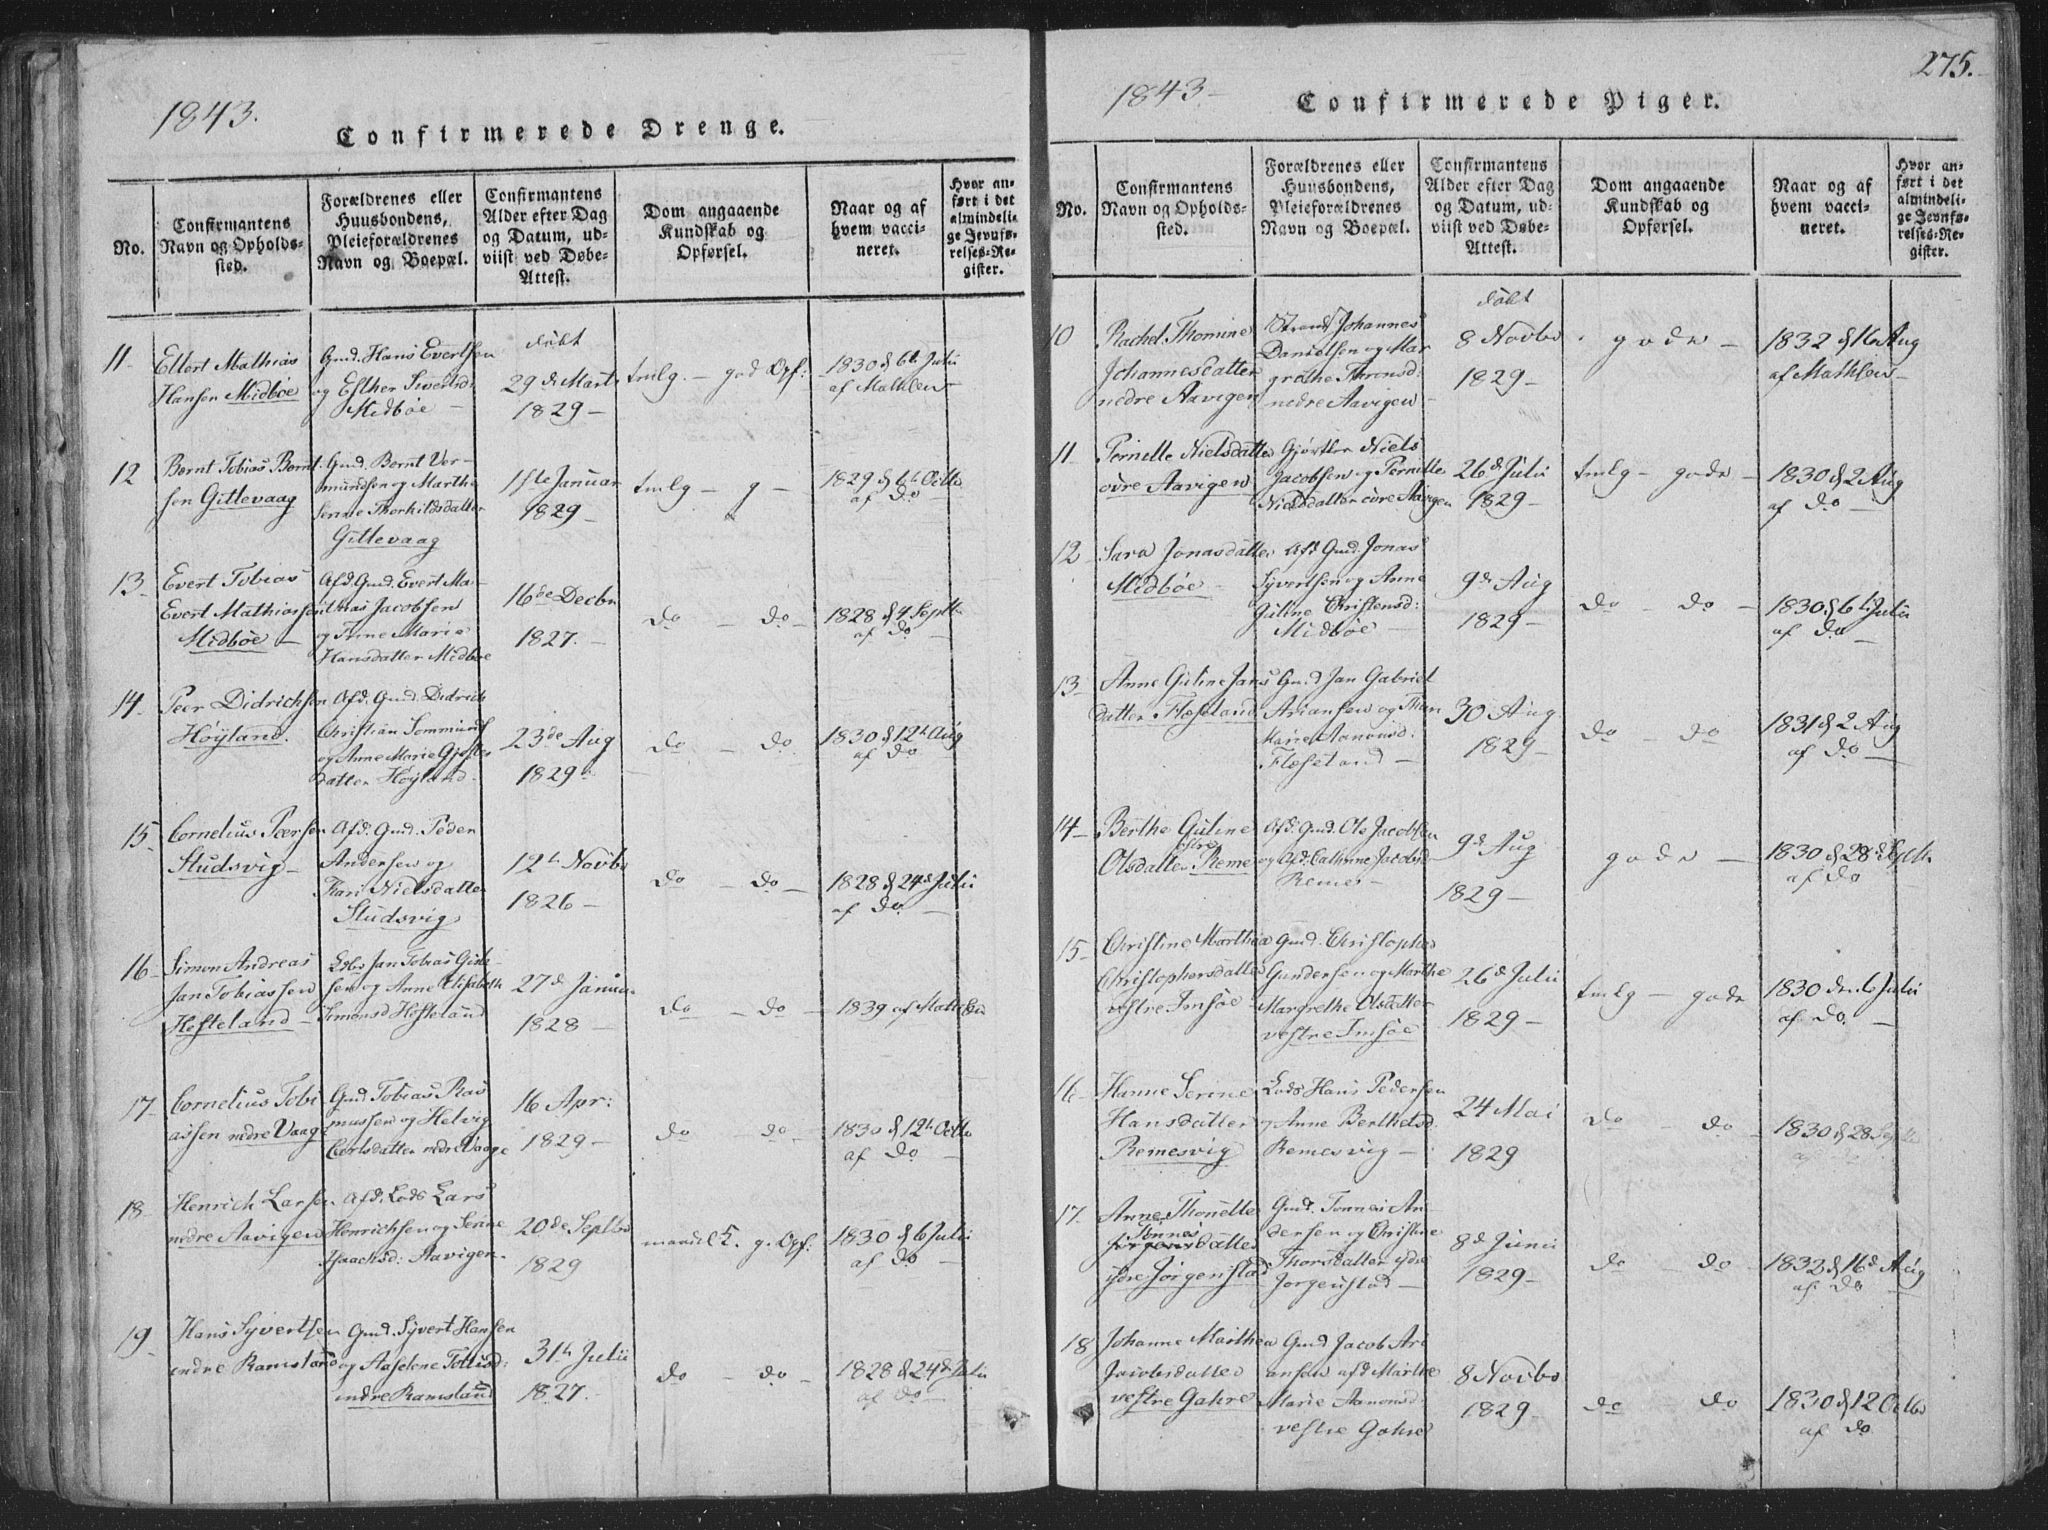 1843.
Confirmerede Drenge.
No.
Confirmantens
Navn og Opholds-
sted.
Forældrenes eller
Huusbondens,
Pleieforældrenes
Navn og Boepæl.
Confirmantens
Alder efter Dag
og Datum, ud-
viist ved Døbe-
Attest.
Dom angaaende
Kundskab og
Opførsel.
Naar og af
hvem vacci-
neret.
Hvor an-
ført i det
almindeli-
ge Jevnfø-
relses-Re-
gister.
11
Ellert Mathias
Hansen Midbøe
Gmd. Hans Evertsen
og Esther Sivertsd:
Midbøe
født
29 de Marts
1829
tmlg. - god Opf:
1830 d 6t Julii
af Mathsen
12
Bernt Tobias Bernt
sen Gittevaag
Gmd. Bernt Ver-
mundsen og Marthe
Serine Therkildsdatter
Gittevaag
1ste Januar
1829
tmlg - g -
1829 d 6t Octbr
af Do
13.
Evert Tobias
Evert Mathiassen
Midbøe
Afd. Gmd. Evert Ma-
thias Jacobsen
og Anne Marie
Hansdatter Midbøe
16de Decbr
1827.
Do - Do -
1828 d 4 Septb
af Do
14
Peer Didrichsen
Høyland.
Afd. Gmd. Didrich
Christian Sommundsen
og Anne Marie
datter Høyland.
23de Aug
1829
Do - Do
1830 d 12t Aug
af Do
15.
Cornelius Peersen
Studsvig
Afd. Gmd. Peder
Andersen og
Kari Nielsdatter
Studsvig
12te Novbr
1826
Do - Do -
1828 d 24d Julii
af Do
16
Simon Andreas
Jan Tobiassen
Hesteland
Lods Jan Tobias
sen og Anne Elisabeth
Simonsd Hesteland
27d Januar
1828
Do - Do -
1839 af Mathsen
17
Cornelius Tobi
assen nedre Vaage
Gmd. Tobias Ras
mussen og Helvig
Carlsdatter nedre Vaage
16 Apr:
1829
Do - Do
1830 d 12t Octbr
af Do
18
Henrich Larsen
nedre Aavigen
Afd. Lods Lars
Henrichsen og Serine
Isaachsd: Aavigen.
20de Septbr
1829
maadel K. g. Opf:
1830 d 6 Julii
af Do
19
Hans Syvertsen
indre Ramsland
Gmd. Syvert Hansen
og Aaselene Tollisd:
indre Ramsland
31te Julii
1827.
Do - Do -
1828 d 24d Julii
af Do
275.
1843
Confirmerede Piger.
No.
Confirmantens
Navn og Opholds-
sted.
Forældrenes eller
Huusbondens,
Pleieforældrenes
Navn og Boepæl.
Confirmantens
Alder efter Dag
og Datum, ud-
viist ved Døbe-
Attest.
Dom angaaende
Kundskab og
Opførsel.
Naar og af
hvem vacci-
neret.
Hvor an-
ført i det
almindeli-
ge Jevnfø-
relses-Re-
gister.
10
Rachel Thomine
Johannesdatter
nedre Aavigen
Strand. Johannes
Danielsen og Mar
grethe Thronsd:
nedre Aavigen
født
8 Novbr
1829
gode
1832 d 16 Aug
af Mathsen
11
Pernelle Nielsdatter
øvre Aavigen
Niels
Jacobsen og Pernille
Nielsdatter øvre Aavigen
26d Julii
1829
tmlg - gode -
1830 d 2 Aug
af Do
12
Sara Jonasdatter
Midbøe
Afd. Gmd. Jonas
Syvertsen og Anne
Guline Christensd:
Midbøe
9de Aug
1829
Do - Do -
1830 d 6t Julii
af Do
13
Anne Guline Jans
datter Fleseland
Gmd Jan Gabriel
Ariansen og Thron
Marie Aanonsd.
Fleseland
30 Aug
1829
Do - Do
1831 d 2 Aug
af Do
14
Berthe Guline
Olsdatter Reme
Afd. Gmd. Ole Jacobsen
og Afd. Cathrine Jacobsd
Reme
9d Aug
1829
gode
1830 d 28de Septbr
af Do
15
Christine Marthea
Christophersdatter
vestre Imsöe
Gmd. Christopher
Gundersen og Marthe
Margrethe Olsdatter
vestre Imsöe
26d Julii
1829
tmlg - gode
1830 den 6 Julii
af Do.
16
Hanne Serine
Hansdatter
Remesvig
Lods Hans Pedersen
og Anne Berthelsd.
Remesvig
24 Mai
1829
Do Do
1830 d 28 Septbr
af Do
17
Anne Thonette
Tønnes
datter
ydre Jørgenstad
Gmd. Tønnes An
dersen og Christine
Thorsdatter ydre
Jørgenstad
8d Junii
1829
Do - Do
1832 d 16d Aug
af Do
18
Johanne Marthea
Jacobsdatter
vestre Gahre
Gmd Jacob Ari
ansen afd Marthe
Marie Aanonsd.
vestre Gahre
8 Novbr
1829
Do - Do
1830 d 12 Octbr
af Do